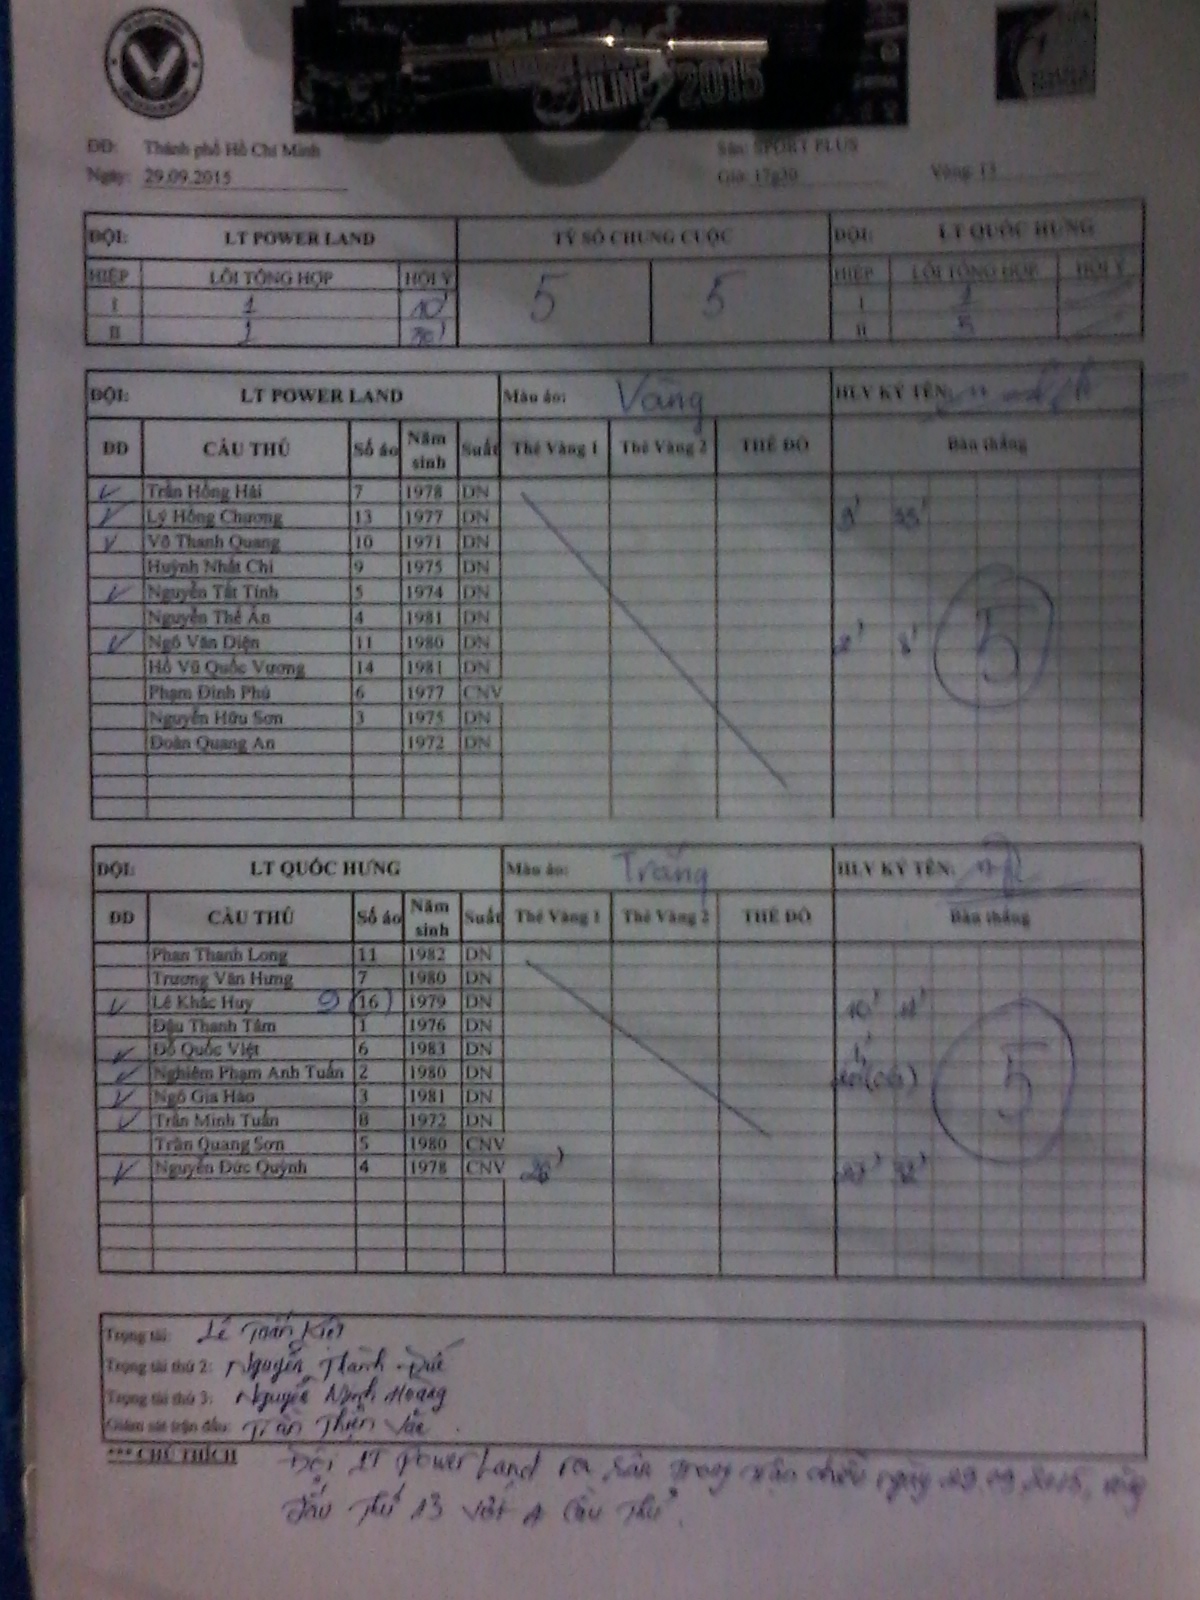 ONLINE 2015
ĐD: Thành phố Hồ Chí Minh Sân: SPORT PLUS
Ngày: 29.09.2015 Giờ: 17g30 Vòng: 13
ĐỘI: LT POWER LAND TỶ SỐ CHUNG CUỘC ĐỘI: LT QUỐC HƯNG
HIỆP LỖI TỔNG HỢP HỘI Ý 5 5 HIỆP LỖI TỔNG HỢP HỘI Ý
I 1 10' I 1
II 1 II 5
ĐỘI: LT POWER LAND Màu áo: Vàng HLV KÝ TÊN:
ĐD CẦU THỦ Số áo Năm sinh Suất Thẻ Vàng 1 Thẻ Vàng 2 THẺ ĐỎ Bàn thắng
Trần Hồng Hải 7 1978 DN
Lý Hồng Chương 13 1977 DN
Võ Thanh Quang 10 1971 DN
Huỳnh Nhất Chi 9 1975 DN
Nguyễn Tất Tính 5 1974 DN
Nguyễn Thế Ân 4 1981 DN
Ngô Văn Diện 11 1980 DN
Hồ Vũ Quốc Vương 14 1981 DN
Phạm Đình Phú 6 1977 CNV
Nguyễn Hữu Sơn 3 1975 DN
Đoàn Quang An 1972 DN
5
ĐỘI: LT QUỐC HƯNG Màu áo: Trắng HLV KÝ TÊN:
ĐD CẦU THỦ Số áo Năm sinh Suất Thẻ Vàng 1 Thẻ Vàng 2 THẺ ĐỎ Bàn thắng
Phan Thanh Long 11 1982 DN
Trương Văn Hưng 7 1980 DN
Lê Khắc Huy 9 (16) 1979 DN 10' 11'
Đậu Thanh Tâm 1 1976 DN
Đỗ Quốc Việt 6 1983 DN
Nghiêm Phạm Anh Tuấn 2 1980 DN
Ngô Gia Hào 3 1981 DN
Trần Minh Tuấn 8 1972 DN
Trần Quang Sơn 5 1980 CNV
Nguyễn Đức Quỳnh 4 1978 CNV
5
Trọng tài: Lê Tuấn Kiệt
Trọng tài thứ 2: Nguyễn Thành
Trọng tài thứ 3: Nguyễn Minh Hoàng
Giám sát trận đấu: Trần Thiện
*** CHÚ THÍCH Đội LT Power Land ra sân trong trận chiều ngày 29.09.2015, vòng
đấu thứ 13 với 4 cầu thủ.